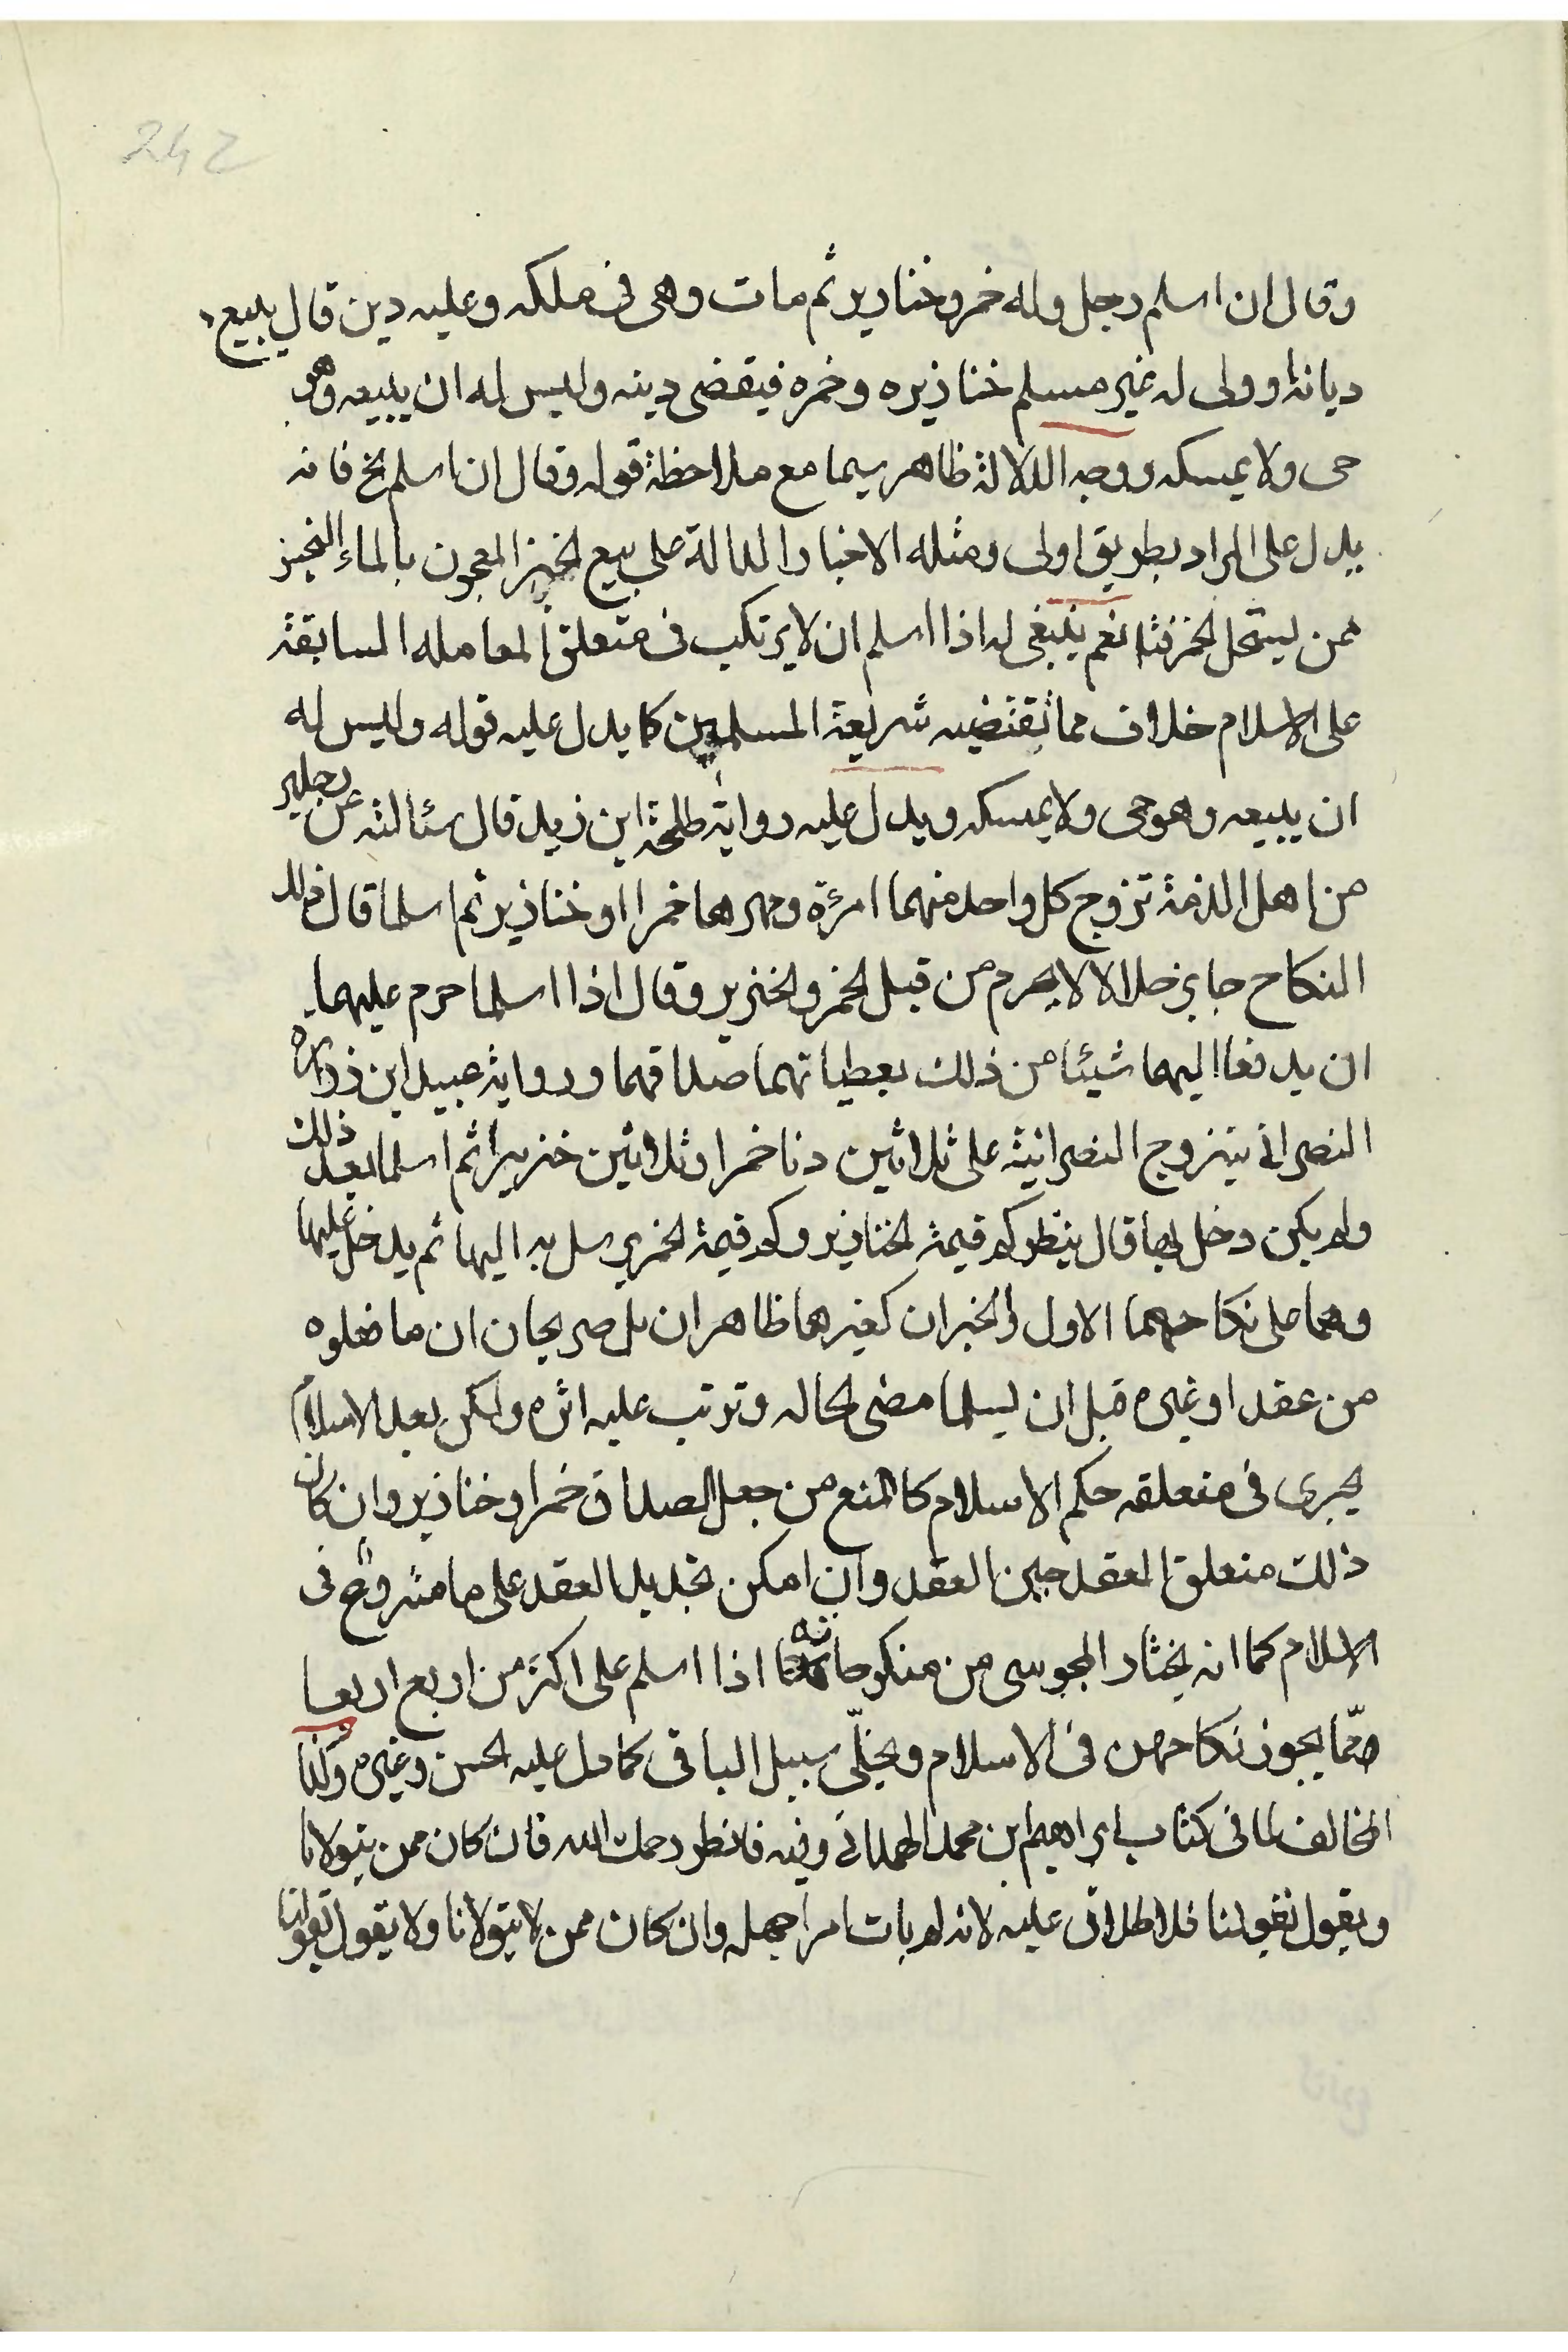 242
وقال ان اسلم رجل وله خمر وخنازير ثم مات وهى فى ملكه وعليه دين قال يبيع
ديانه او ولى له غير مسلم خنازيره وخمره فيقضى دينه وليس له ان يبيعه وهو
حى ولا يمسكه ووجه الدلالة ظاهر سيما مع ملاحظة قوله وقال ان اسلم الخ فانه
يدل على المراد بطريق اولى ومثله الاخبار الدالة على بيع الخبز المعجون بالماء النجس
ممن يستحل الخمر نعم ينبغى له اذا اسلم ان لا يرتكب فى متعلق المعامله السابقة
على الاسلام خلاف مما تقتضيه شريعة المسلمين كما يدل عليه قوله وليس له
ان يبيعه وهو حى ولا يمسكه ويدل عليه رواية طلحة ابن زيد قال سئالته عن رجلين
من اهل الذمة تزوج كل واحد منهما امرئة ومهرهما خمرا او خنازير ثم اسلما قال ذلك
النكاح جايز حلالا لا يحرم من قبل الخمر والخنزير وقال اذا اسلما حرم عليهما
ان يدفعا اليهما شيئا من ذلك يعطياتهما صداقهما ورواية عبيد ابن زرارة
النصرانى يتزوج النصرانية على ثلاثين دنا خمرا وثلاثين خنزيرا ثم اسلما بعد ذلك
ولم يكن دخل بها قال ينظر كم قيمة الخنازير وكم قيمة الخمر يرسل به اليها ثم يدخل عليها
وهما على نكاحهما الاول والخبران كغيرهما ظاهران بل صريحان ان ما فعلوه
من عقد او غيره قبل ان يسلما مضى لحاله وترتب عليه اثره ولكن بعد الاسلام
يجرى فى متعلقه حكم الاسلام كالمنع من جعل الصداق خمرا وخنازير وان كان
ذلك متعلق العقد حين العقد وان امكن تجديد العقد على ما مشروع فى
الاسلام كما انه يختار المجوسى من منكوحاته اذا اسلم على اكثر من اربع اربعا
ممّا يجوز نكاحهن فى الاسلام ويخلّى سبيل الباقى كما دل عليه الحسن وغيره وكذا
المخالف لما فى كتاب ابراهيم ابن محمد الهمدانى وفيه فانظر رحمك الله فان كان ممن يتولانا
ويقول بقولنا فلا طلاق عليه لانه لم يات امرا جهله وان كان ممن لا يتولانا ولا يقول بقولنا